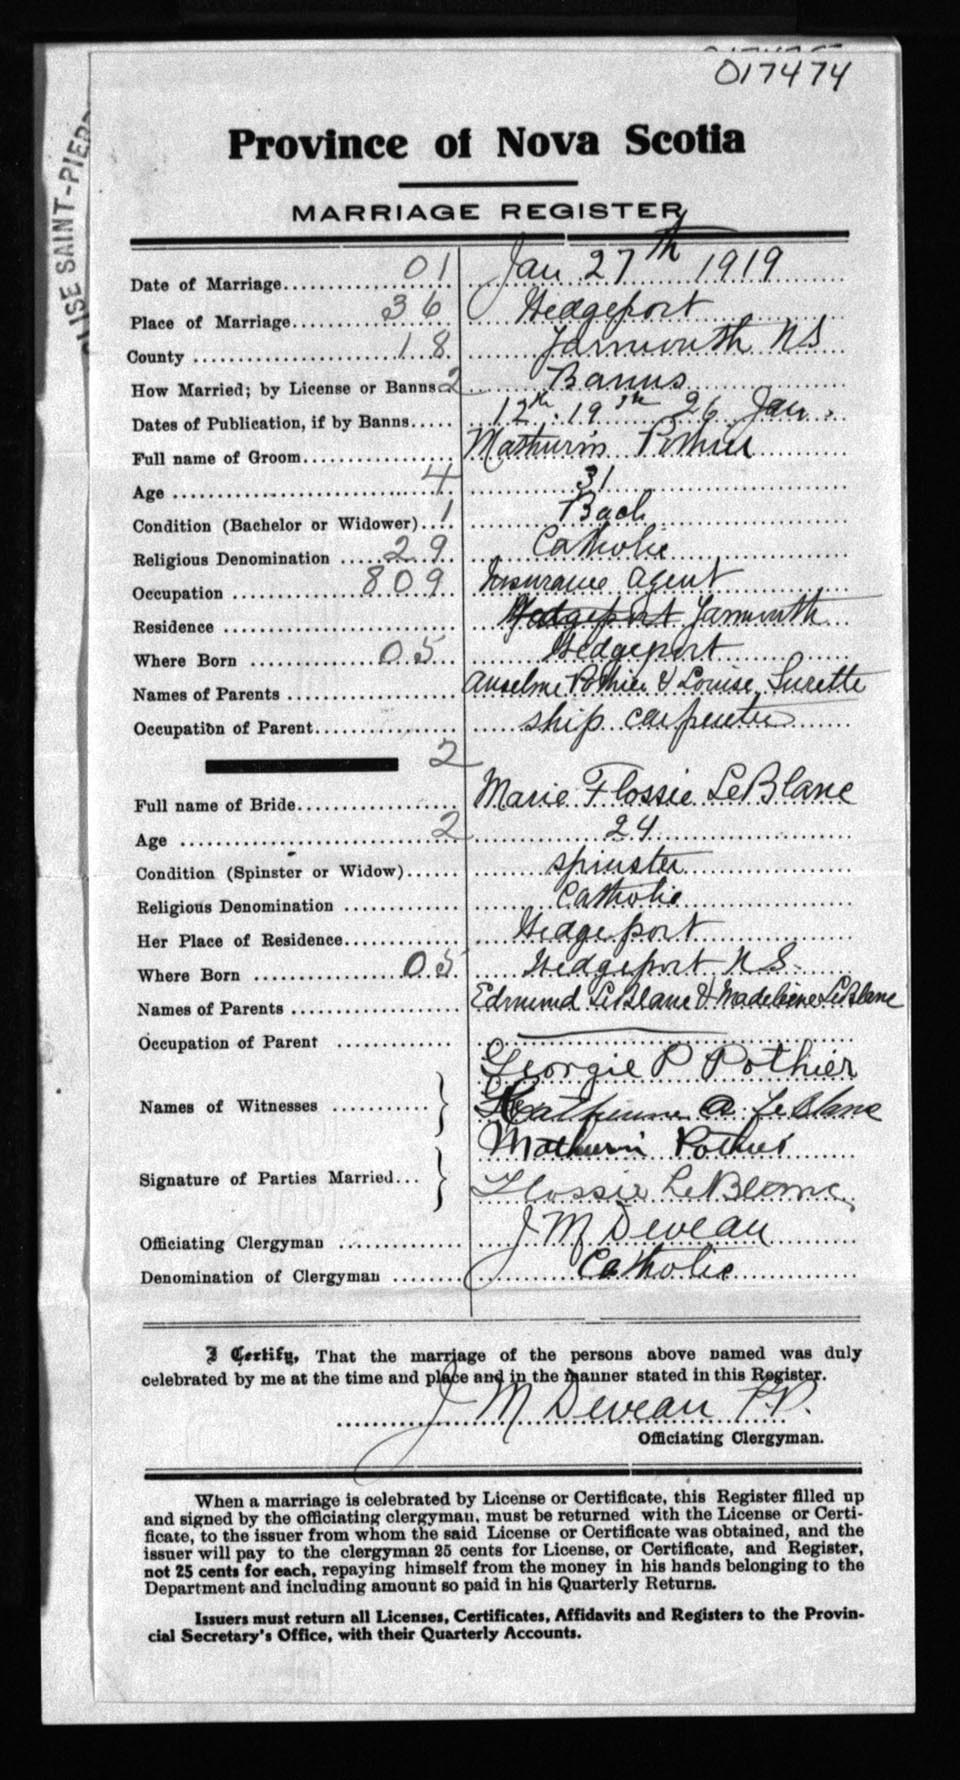 017474
Province of Nova Scotia
MARRIAGE REGISTER
Date of Marriage 01 Jan 27th 1919
Place of Marriage 36 Wedgeport
County 18 Yarmouth NS
How Married; by License or Banns 2 Banns
Dates of Publication, if by Banns 12th 19th 26 Jan.
Full name of Groom Mathurin Pothier
Age 4 31
Condition (Bachelor or Widower) 1 Bach
Religious Denomination 29 Catholic
Occupation 809 Insurance agent
Residence Wedgeport Yarmouth
Where Born 05 Wedgeport
Names of Parents Anselme Pothier & Louise Surette
Occupation of Parent ship carpenter
2
Full name of Bride Marie Flossie LeBlanc
Age 2 24
Condition (Spinster or Widow) spinster
Religious Denomination Catholic
Her Place of Residence Wedgeport
Where Born 05 Wedgeport N.S.
Names of Parents Edmund LeBlanc & Madeleine LeBlanc
Occupation of Parent
Georgie P Pothier
Names of Witnesses Katherine A LeBlanc
Mathurin Pothier
Signature of Parties Married Flossie LeBlanc
Officiating Clergyman J M Deveau
Denomination of Clergyman Catholic
I Certify, That the marriage of the persons above named was duly
celebrated by me at the time and place and in the manner stated in this Register.
J M Deveau P.P.
Officiating Clergyman.
When a marriage is celebrated by License or Certificate, this Register filled up
and signed by the officiating clergyman, must be returned with the License or Certi-
ficate, to the issuer from whom the said License or Certificate was obtained, and the
issuer will pay to the clergyman 25 cents for License, or Certificate, and Register,
not 25 cents for each, repaying himself from the money in his hands belonging to the
Department and including amount so paid in his Quarterly Returns.
Issuers must return all Licenses, Certificates, Affidavits and Registers to the Provin-
cial Secretary's Office, with their Quarterly Accounts.